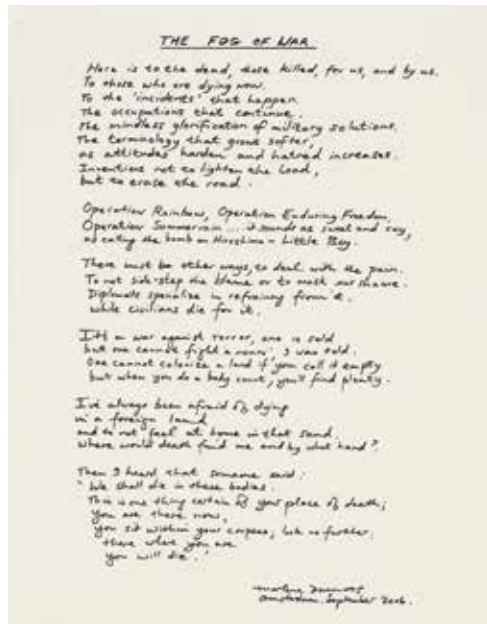 THE FOG OF WAR
Here is to the dead, those killed, for us, and by us.
To those who are dying now.
To the 'incidents' that happen.
The occupations that continue.
The mindless glorification of military solutions.
The terminology that grows softer,
as attitudes harden and hatred increases.
Inventions not to lighten the load,
but to erase the road.
Operation Rainbow, Operation Enduring Freedom,
Operation Summerrain... it sounds as sweet and cosy,
as calling the bomb on Hiroshima - Little Boy.
There must be other ways, to deal with the pain.
To not side-step the blame or to mask our shame.
Diplomats specialize in refraining from it.
while civilians die for it.
It's a war against terror, one is told
but one cannot fight a noun, I was told.
One cannot colonize a land if you call it empty
but when you do a body count, you'll find plenty.
I've always been afraid of dying
in a foreign land
and to not feel at home in that sand.
Where would death find me and by what hand?
Then I heard that someone said:
"We shall die in these bodies.
This is one thing certain of your place of death;
you are there now,
you sit within your corpse, look no further,
there where you are
you will die."
Marlene Dumas
Amsterdam, September 2006.